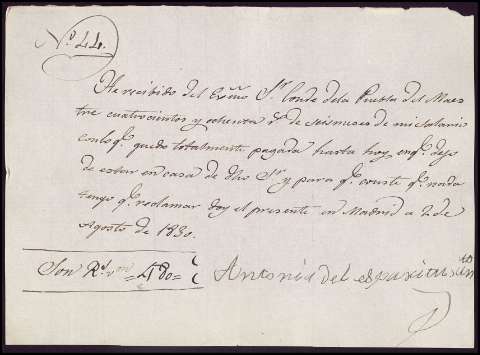 Nº 44.
He recibido del Exmo Sr Conde dela Puebla del Maes
tre cuatrocientos y ochenta rs de seismeses de mi salario
conlo q.e quedo totalmente pagada hasta hoy enq.e dejo
de estar en casa de dho Sr y para q.e conste q.e nada
tengo q.e reclamar doy el presente en Madrid a 2 de
Agosto de 1830.
Son Rs vn = 480 =
Antonia del espiritu